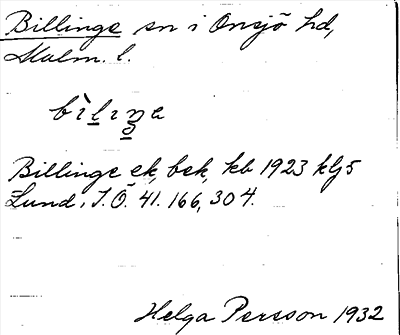 Billinge sn i Onsjö hd,
Malm. l.
bìliŋe
Billinge ek, bek, kb 1923 klj 5
Lund, I.Ö. 41. 166, 304.
Helga Persson 1932